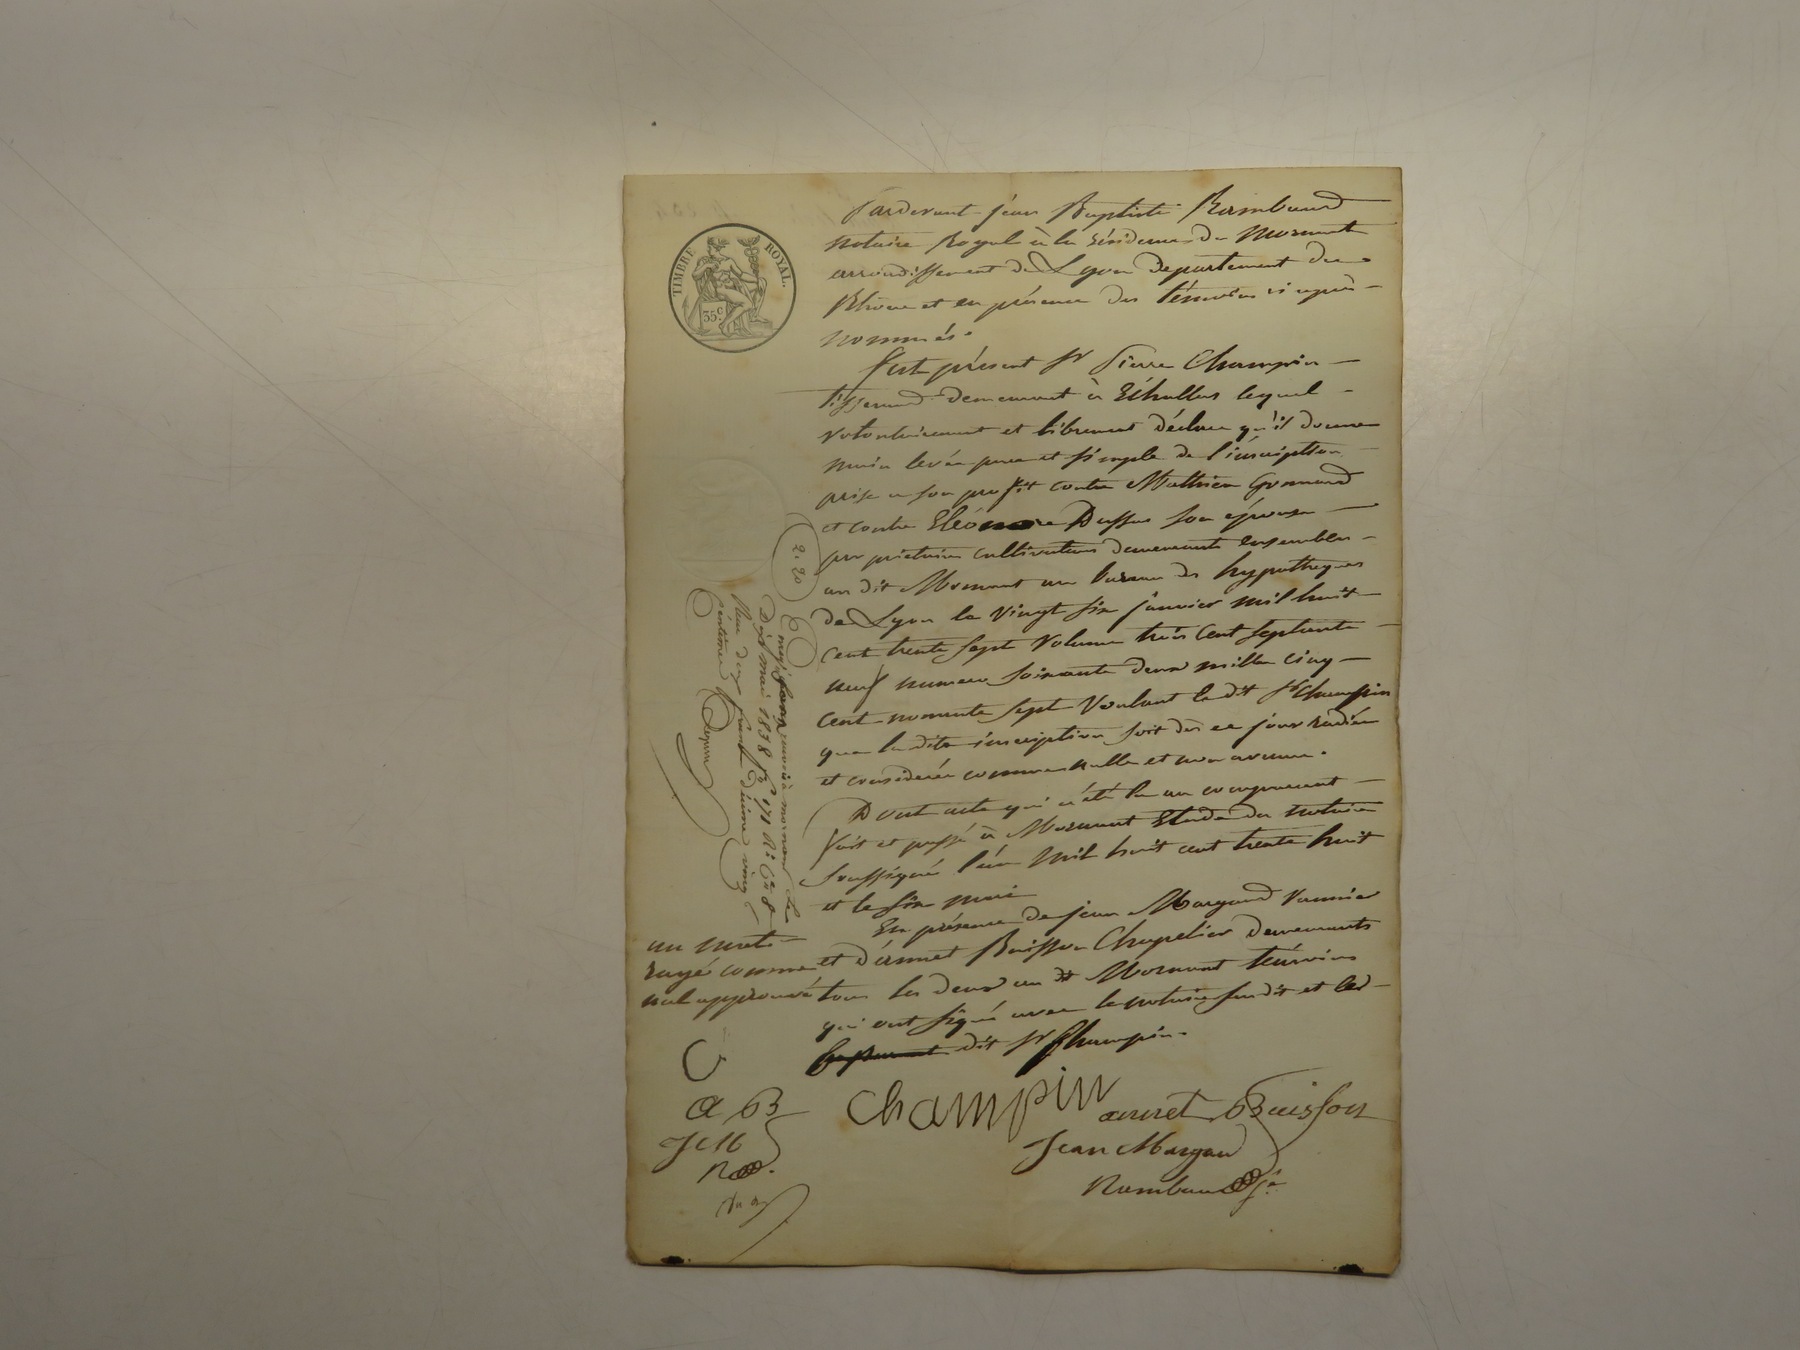 TIMBRE ROYAL.
35 c.
Pardevant jean Baptiste Rambaud
notaire Royal à la résidence de Mornant
arrondissement de Lyon Département du
Rhône et en présence des témoins ci après
nommés.
fut présent sr pierre Champin
tisserand demeurant à Echallas lequel
volontairement et librement déclare qu'il donne
main levée pure et simple de l'inscription
prise a son profit contre Mathieu Gonnard
et contre Eléonore Dussus son épouse
propriétaires cultivateurs demeurants ensembles
au dit Mornant au bureau des hypothèques
de Lyon le vingt six janvier mil huit
cent trente sept volume trois cent septante
neuf numéro soixante deux mille cinq
cent nonante sept Voulant le dit sr Champin
que la dite inscription soit dès ce jour radiée
et considérée comme nulle et non avenue.
Dont acte qui a été lu au comparant
fait et passé à Mornant Etude du notaire
soussigné l'an mil huit cent trente huit
et le six mai
En présence de jean Margaud
et d'annet Buisson Chapelier demeurants
tous les deux au dt Mornant témoins
qui ont signé avec le notaire susdit et led
dit sr Champin.
2. 20
Enregistré à mornant le
Dix mai 1838 fo 171 Ro C 8
Reçu deux francs décime vingt
centimes
un mot
rayé comme
nul approuvé
C
a B
J M
R
Champin
annet Buisson
Jean Margau
Rambaud